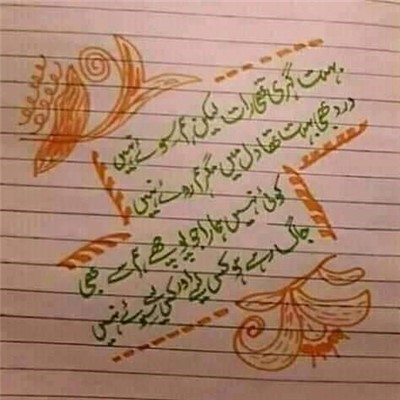 بہت گہری تھی رات لیکن ہم سوئے نہیں
درد بھی بہت تھا دل میں مگر ہم روئے نہیں
کوئی نہیں ہمارا جو پوچھے ہم سے بھی
جاگ رہے ہو کس لیے اور کس لیے سوئے نہیں